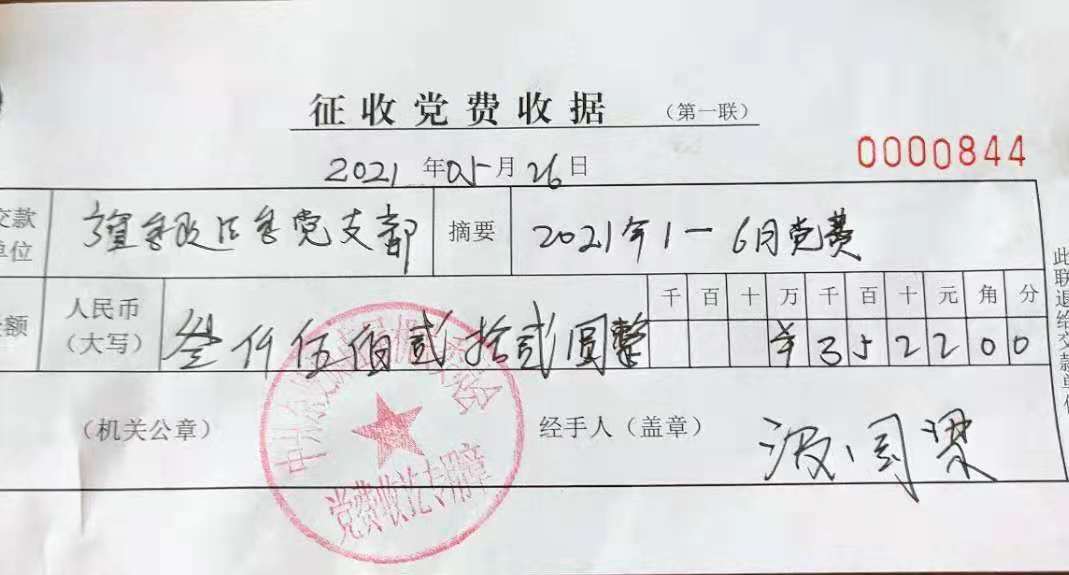 征收党费收据 （第一联）
2021年05月26日
0000844
交款单位 党支部 摘要 2021年1-6月党费
金额 人民币（大写） 叁仟伍佰贰拾贰圆整
千 百 十 万 千 百 十 元 角 分
¥ 3 5 2 2 0 0
（机关公章）
经手人（盖章）
党费收讫专用章
此联退给交款单位